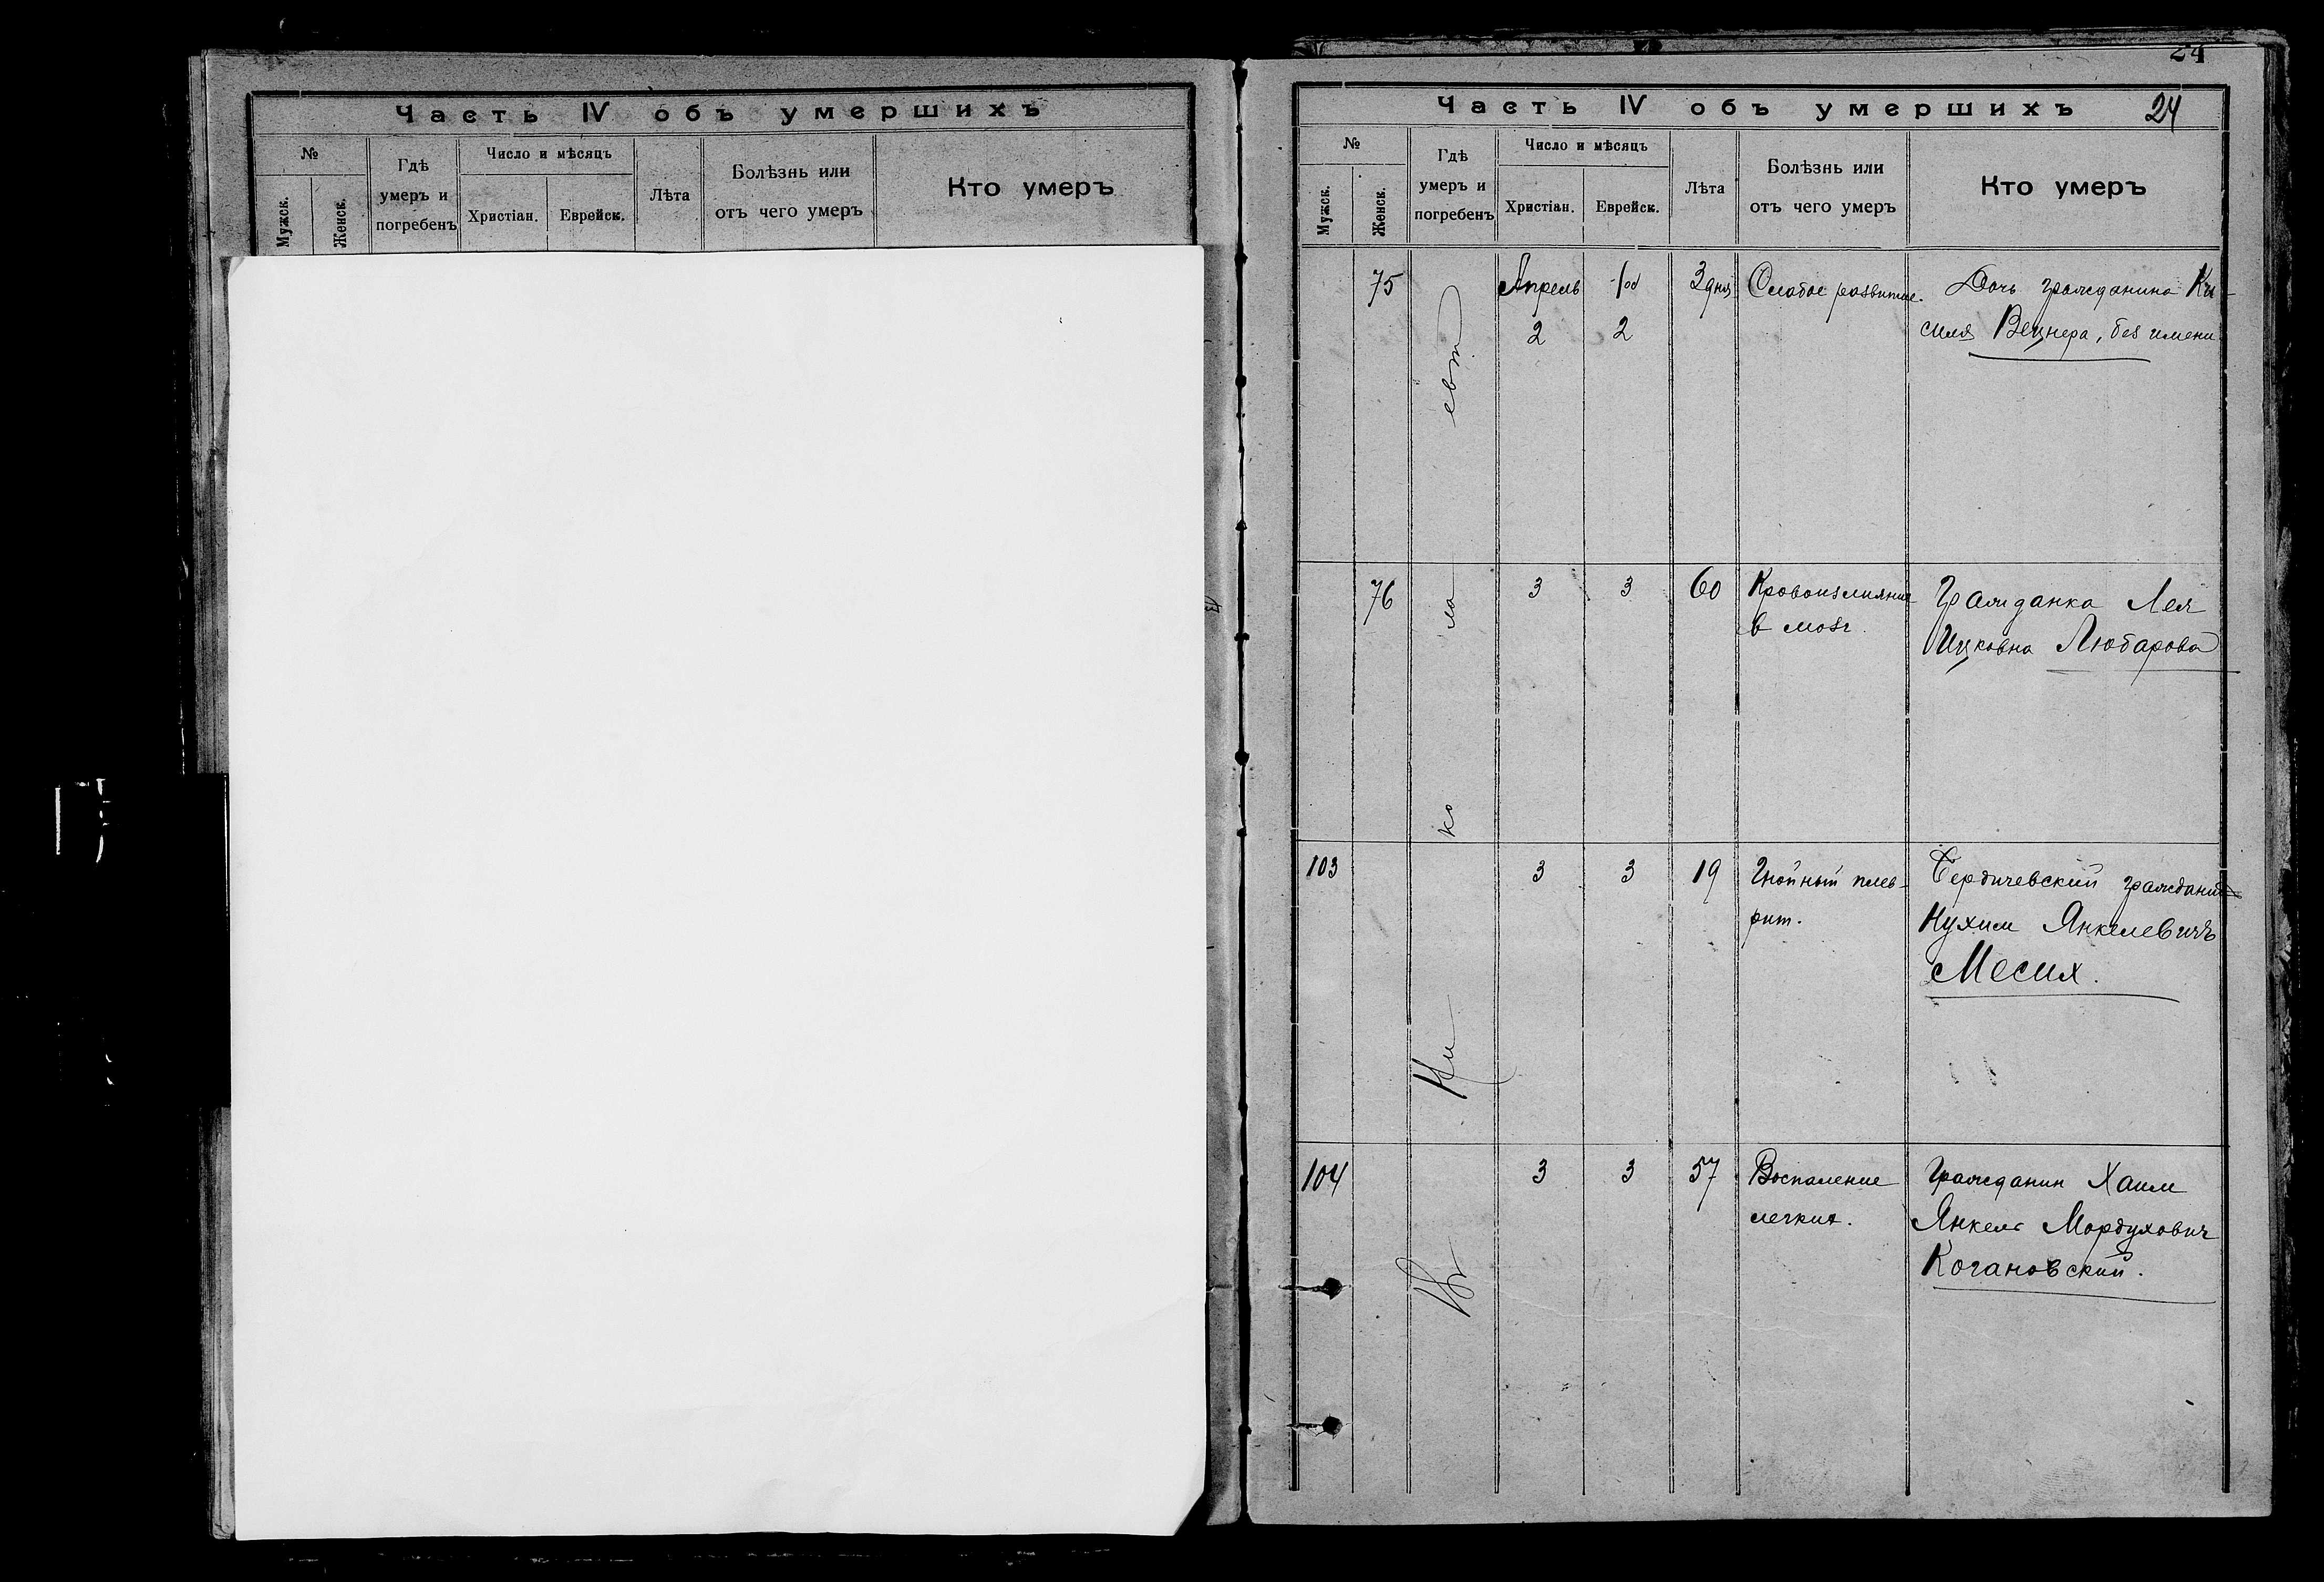 Часть IV объ умершихъ
№
Мужск.
Женск.
Гдѣ
умеръ и
погребенъ
Число и мѣсяцъ
Христіан.
Еврейск.
Лѣта
Болѣзнь или
отъ чего умеръ
Кто умеръ
24
Часть IV объ умершихъ 24
№
Мужск.
Женск.
Гдѣ
умеръ и
погребенъ
Число и мѣсяцъ
Христіан.
Еврейск.
Лѣта
Болѣзнь или
отъ чего умеръ
Кто умеръ
В г. Ни ко ла евѣ
75
Апрель
2
2
3 дня
Слабое развитие.
Дочь гражданина Ки-
силя Вецнера, без имени
76
3
3
60
Кровоизлияние
в мозг.
Гражданка Лея
Ицковна Любарова
103
3
3
19
Гнойный плев-
рит.
Бердичевский гражданин
Нухим Янкелевичъ
Месих.
104
3
3
57
Воспаление
легких.
Гражданин Хаим
Янкель Мордухович
Когановский.